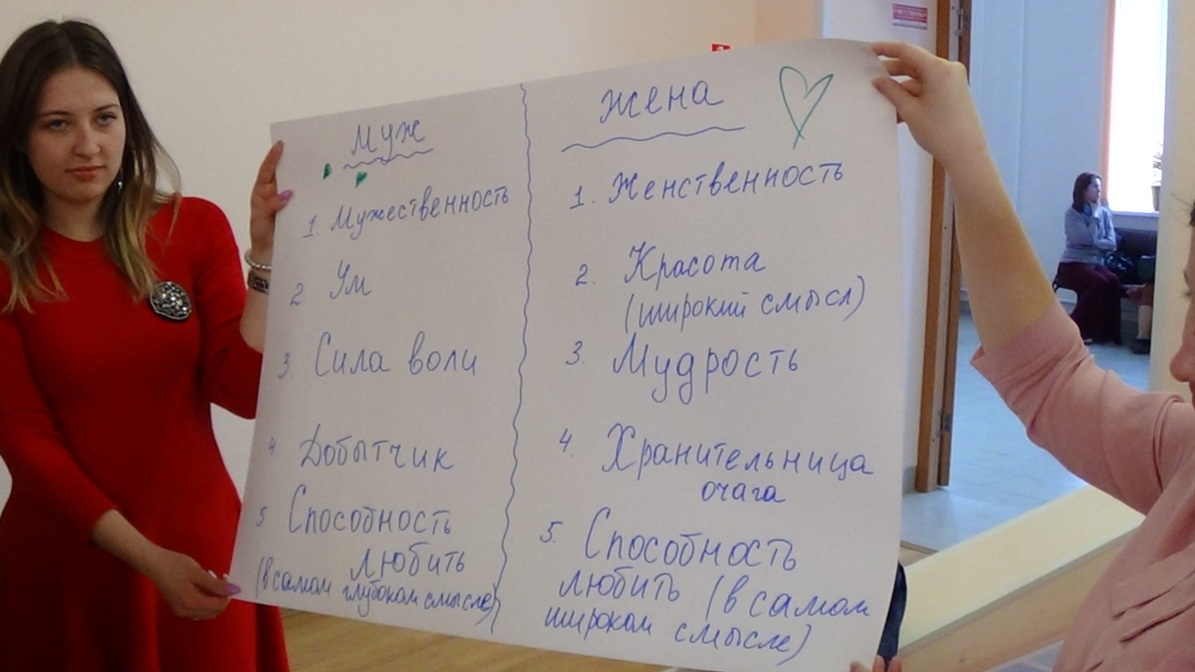 Муж
1. Мужественность
2. Ум
3. Сила воли
4. Добытчик
5 Способность
любить
(в самом глубоком смысле)
Жена
1. Женственность
2. Красота
(широкий смысл)
3. Мудрость
4. Хранительница
очага
5. Способность
любить (в самом
широком смысле)